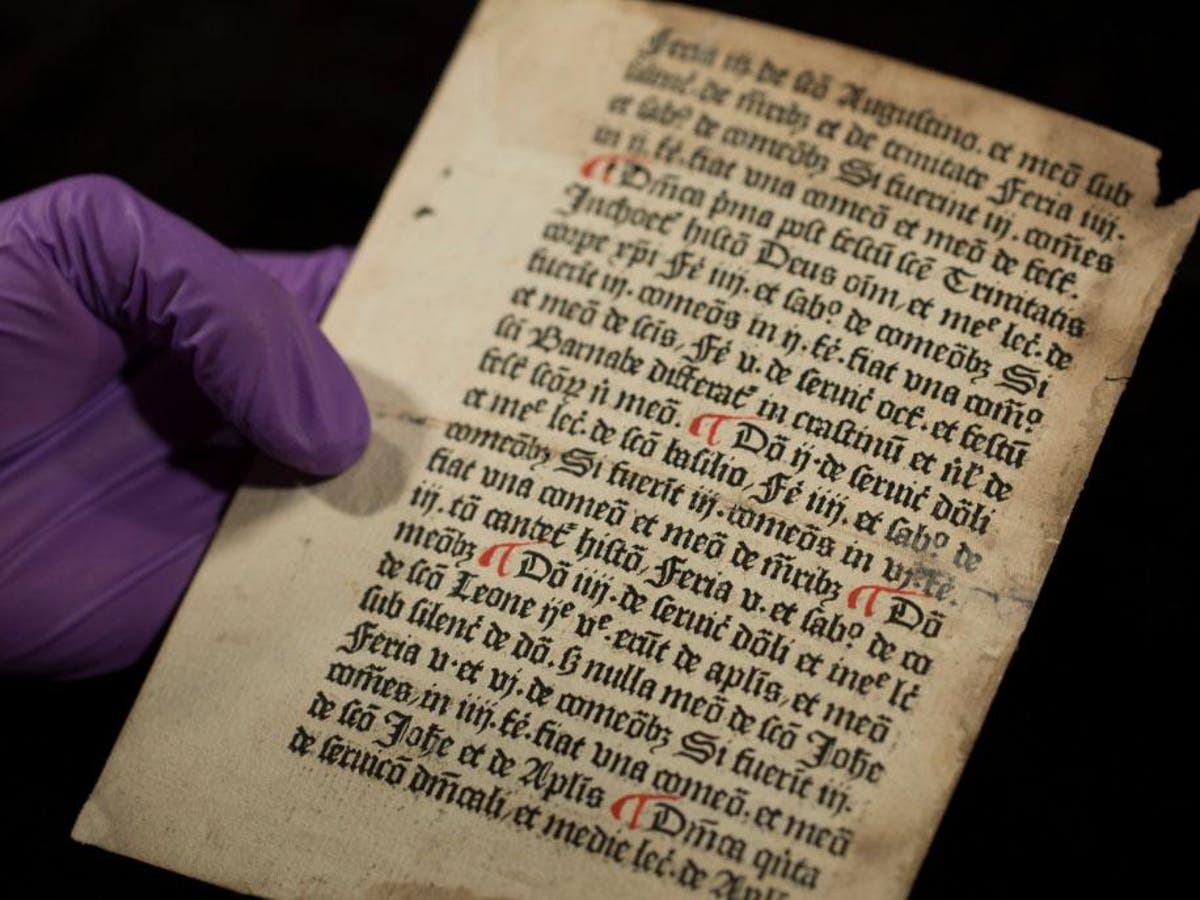 Feria iij. de scō Augustino. et meō sub
silenc̄. de m̄rībꝫ et de trinitate Feria iiij.
et sabᵒ de comeōbꝫ Si fuerint iij. com̄es
in ij. fē. fiat vna comeō et meō de fest̄.
¶ Dn̄ica p̄ma post festū scē Trinitatis
Inchoet̄ histō Deus oīm, et meᵉ lec̄. de
corpe xp̄i Fē iiij. et sabᵒ de comeōbꝫ Si
fuerīt iij. comeōs in ij. fē. fiat vna com̄ᵒ
et meō de scīs, Fē v. de seruic̄ oct̄. et festū
sc̄i Barnabe differat̄ in crastinū et n̄l̄ de
fest̄ scōꝝ n̄ meō. ¶ Dō ij. de seruic̄ dōli
et meᵉ lec̄. de scō basilio, Fē iiij. et sabᵒ de
comeōbꝫ Si fuerīt iij. comeōs in vj. fē.
fiat vna comeō et meō de m̄ribꝫ ¶ Dō
iij. tō cantet̄ histō, Feria v. et sabᵒ de co
meōbꝫ ¶ Dō iiij. de seruic̄ dōli et meᵉ lc̄
de scō Leone ijᵉ vᵉ. erūt de aplīs, et meō
sub silenc̄ de dō. sꝫ nulla meō de scō Joħe
Feria v. et vj. de comeōbꝫ Si fuerīt iij.
com̄es, in iiij. fē. fiat vna comeō. et meō
de scō Joħe et de Aplīs ¶ Dn̄ica qūta
de seruicō dn̄icali, et medie lec̄. de Aplī